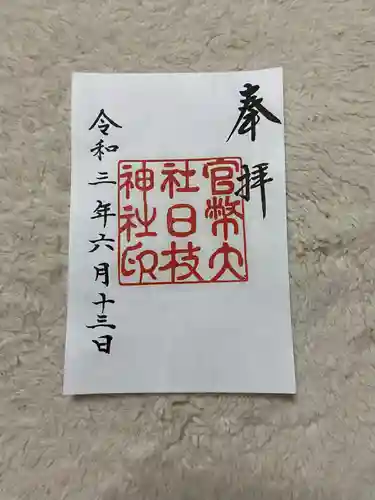 奉拝
官幣大
社日枝
神社印
令和三年六月十三日